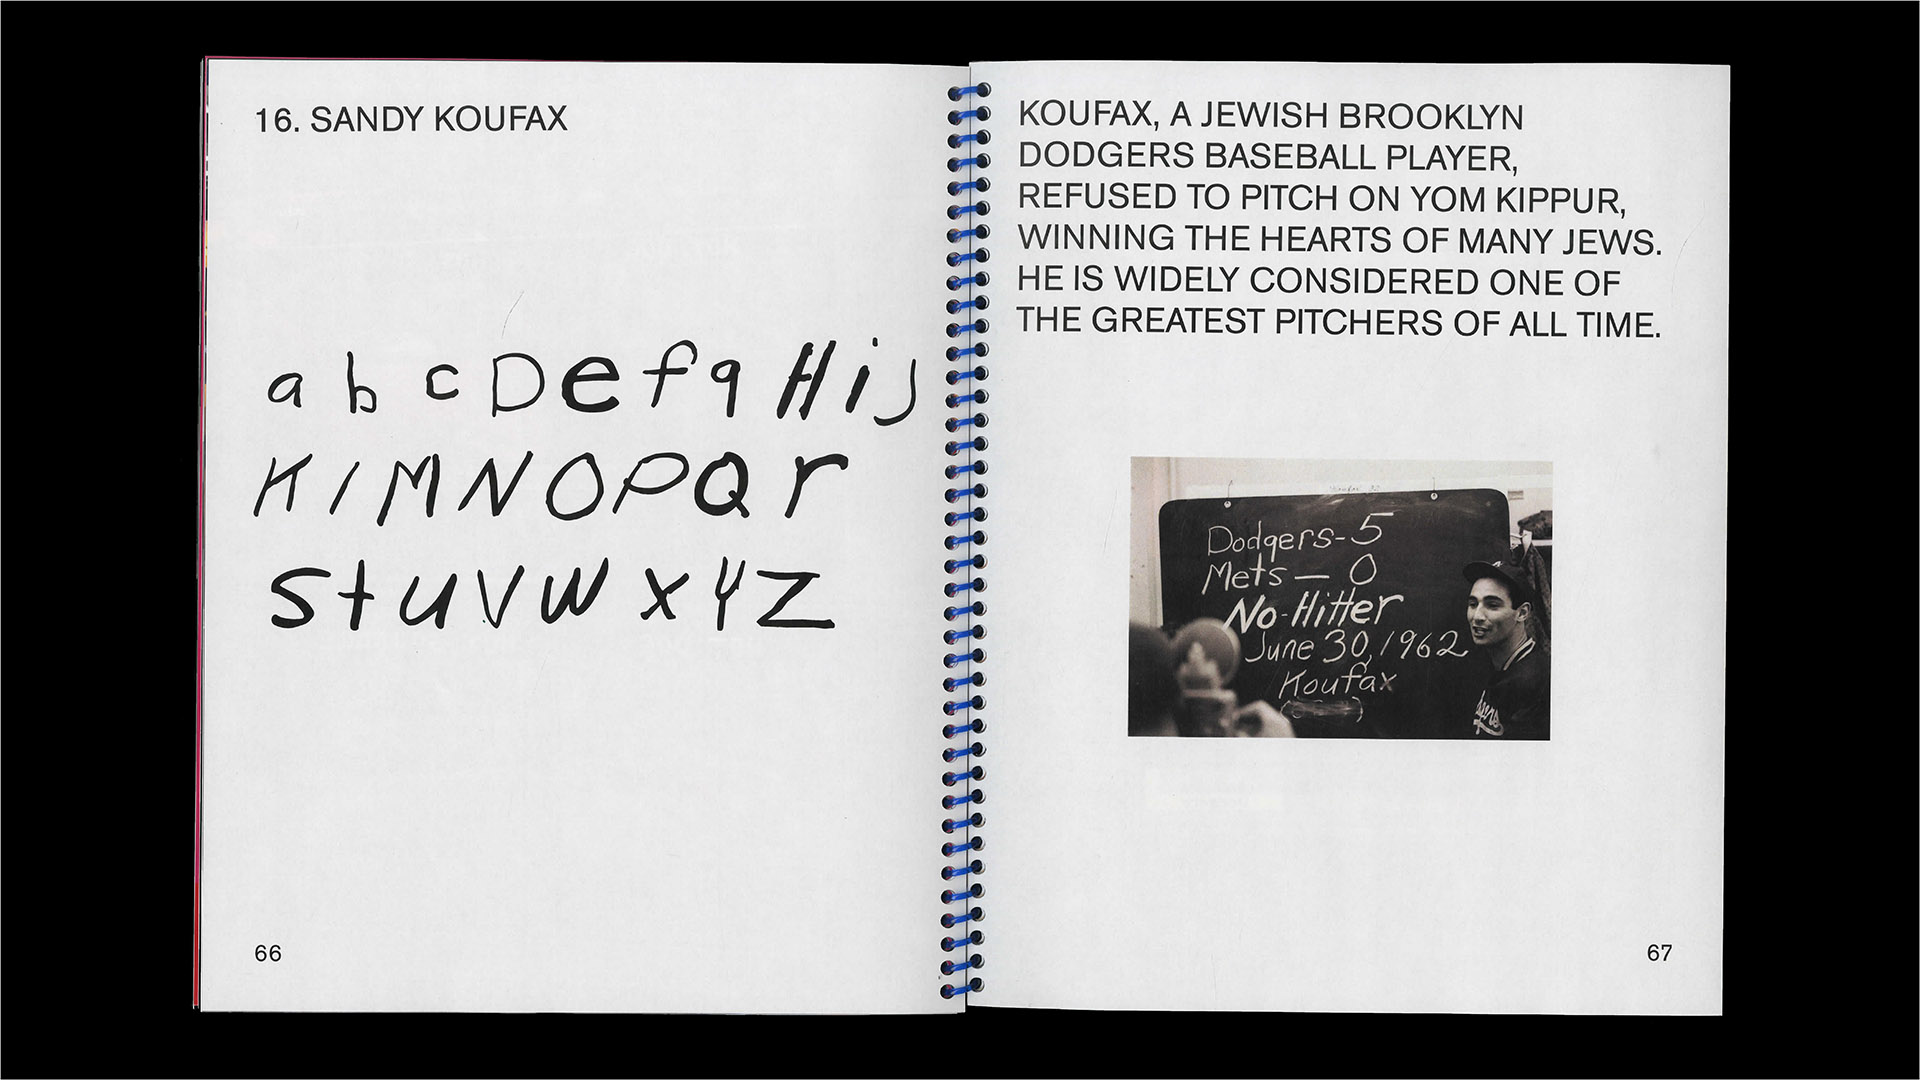 16. SANDY KOUFAX
a b c D e f g H i J
K l M N O P Q r
S t u V W X Y Z
66
KOUFAX, A JEWISH BROOKLYN
DODGERS BASEBALL PLAYER,
REFUSED TO PITCH ON YOM KIPPUR,
WINNING THE HEARTS OF MANY JEWS.
HE IS WIDELY CONSIDERED ONE OF
THE GREATEST PITCHERS OF ALL TIME.
Dodgers-5
Mets—0
No-Hitter
June 30, 1962
Koufax
67